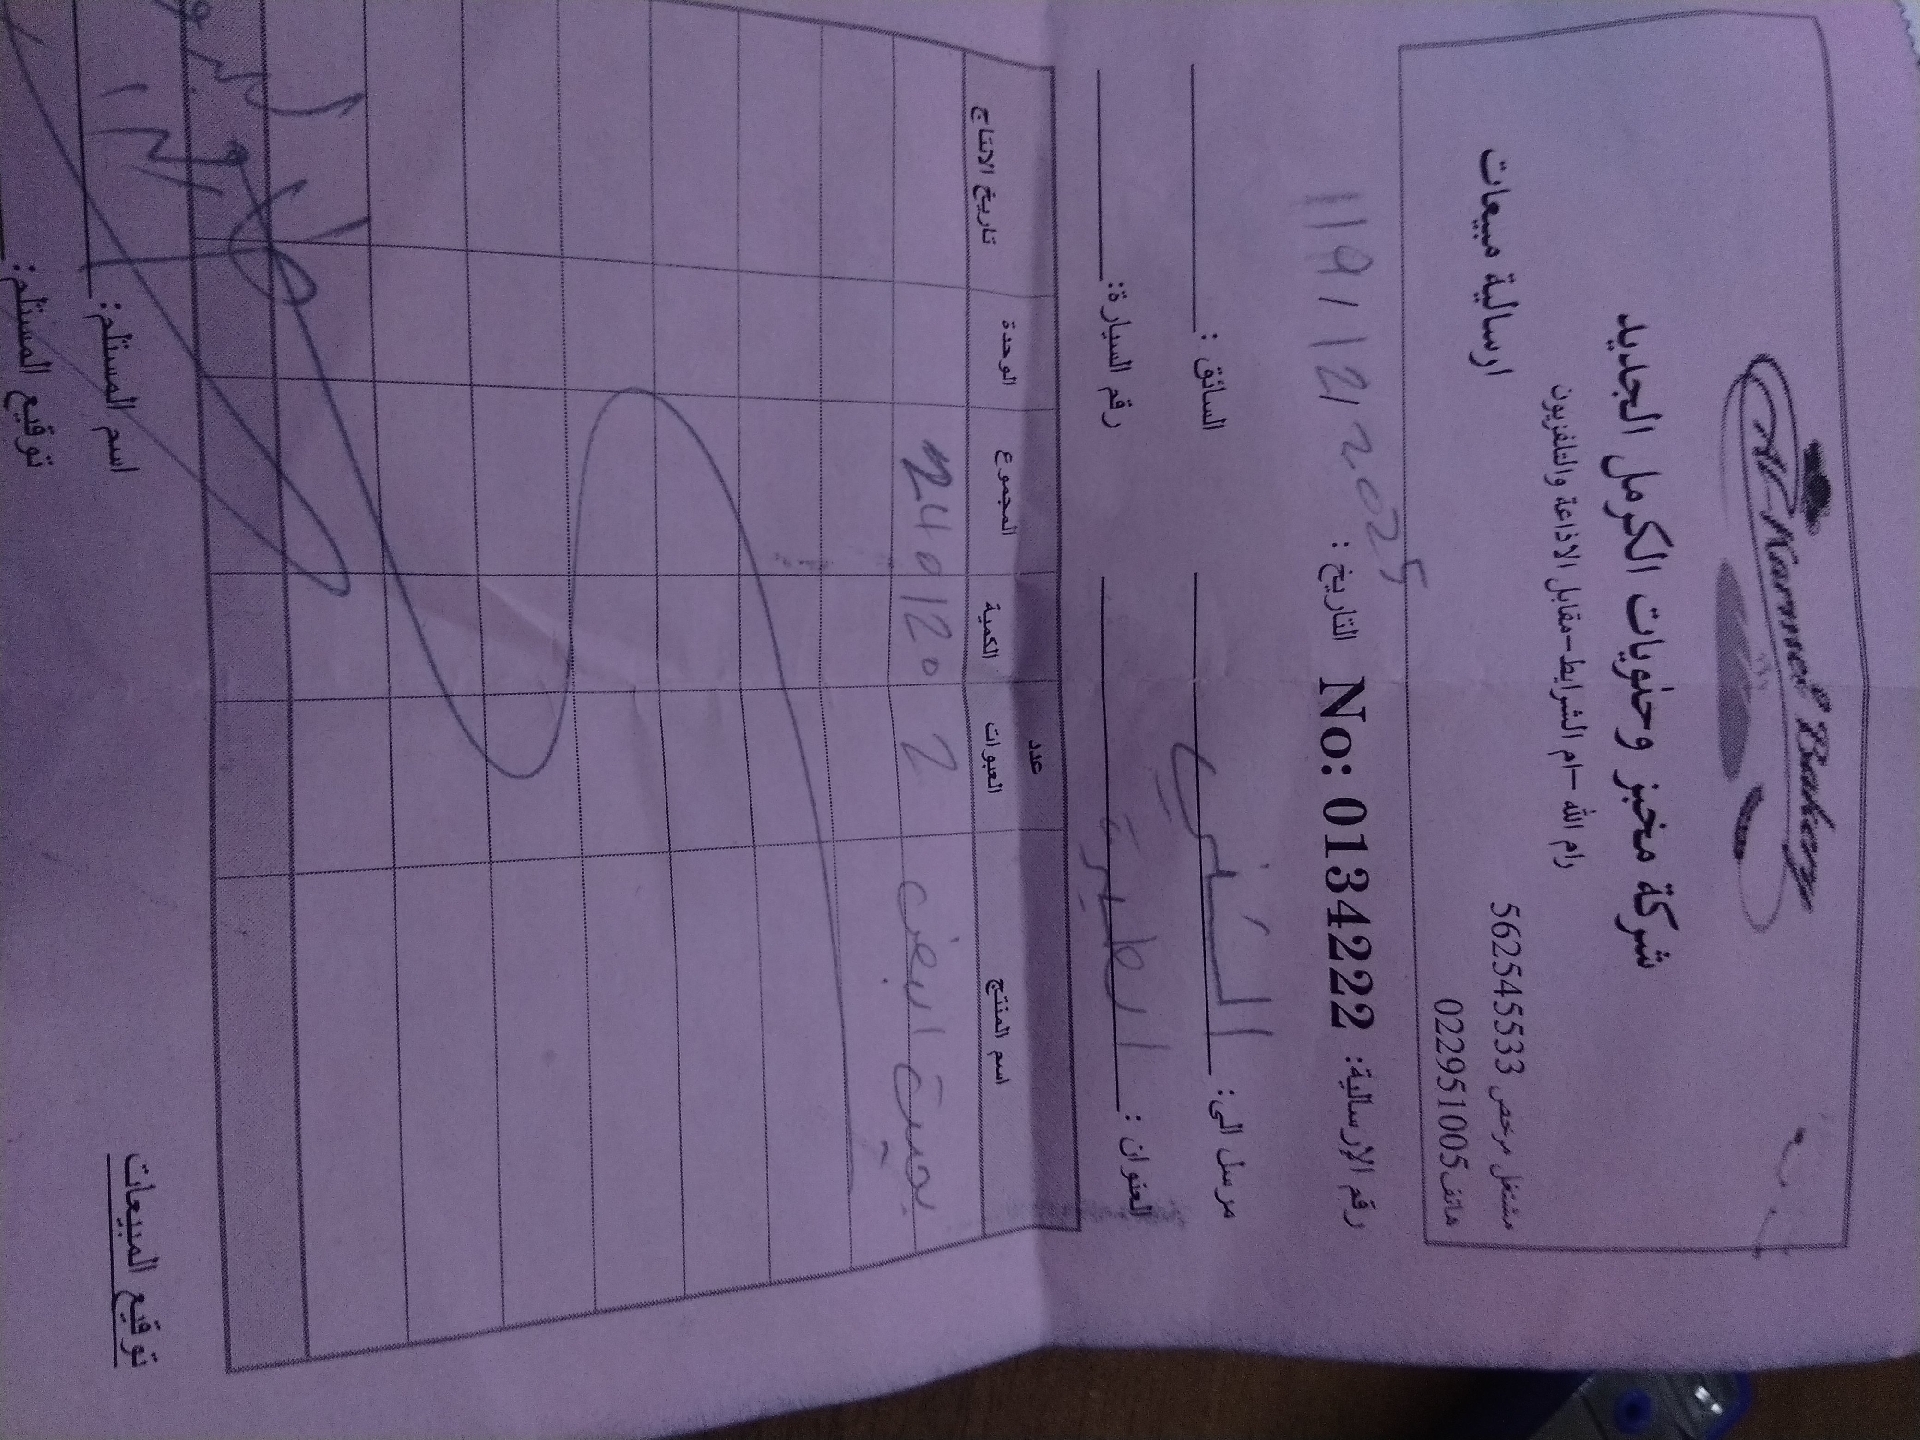 Al-Karmel Bakery
شركة مخبز وحلويات الكرمل الجديد
رام الله -ام الشرايط-مقابل الاذاعة والتلفزيون
مشتغل مرخص 562545533
ارسالية مبيعات
هاتف022951005
رقم الإرسالية: No: 0134222 التاريخ : 2025
مرسل الى: السائق :
العنوان : رقم السيارة:
عدد
اسم المنتج العبوات الكمية المجموع الوحدة تاريخ الانتاج
ابيض 2 120 240
توقيع المبيعات اسم المستلم:
توقيع المستلم: